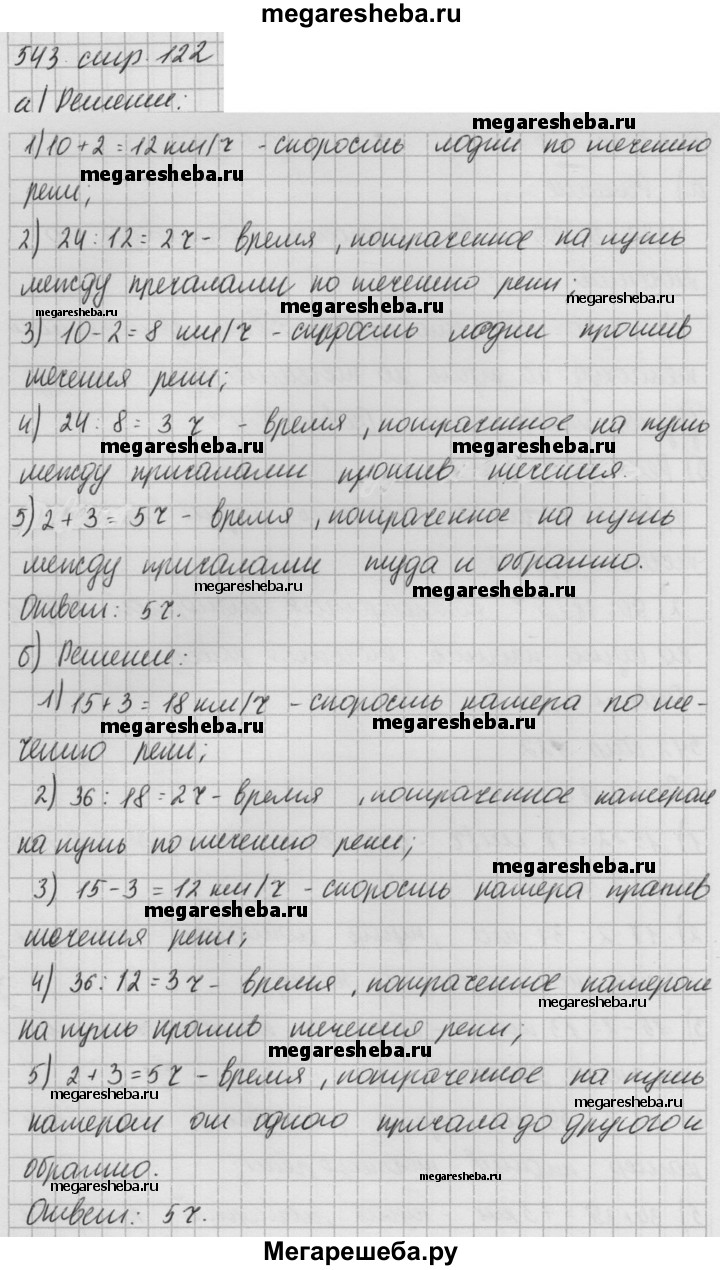 megaresheba.ru
543 стр. 122
а) Решение:
megaresheba.ru
1) 10 + 2 = 12 км/ч - скорость лодки по течению
megaresheba.ru
реки;
2) 24 : 12 = 2 ч - время, потраченное на путь
между причалами по течению реки;
megaresheba.ru megaresheba.ru megaresheba.ru
3) 10 - 2 = 8 км/ч - скорость лодки против
течения реки;
4) 24 : 8 = 3 ч - время, потраченное на путь
megaresheba.ru megaresheba.ru
между причалами против течения.
5) 2 + 3 = 5 ч - время, потраченное на путь
между причалами туда и обратно.
megaresheba.ru megaresheba.ru
Ответ: 5 ч.
б) Решение:
1) 15 + 3 = 18 км/ч - скорость катера по те-
megaresheba.ru megaresheba.ru
чению реки;
2) 36 : 18 = 2 ч - время, потраченное катером
на путь по течению реки;
megaresheba.ru
3) 15 - 3 = 12 км/ч - скорость катера против
megaresheba.ru
течения реки;
4) 36 : 12 = 3 ч - время, потраченное катером
megaresheba.ru
на путь против течения реки;
megaresheba.ru
5) 2 + 3 = 5 ч - время, потраченное на путь
megaresheba.ru megaresheba.ru
катером от одного причала до другого и
обратно.
megaresheba.ru megaresheba.ru
Ответ: 5 ч.
Мегарешеба.ру